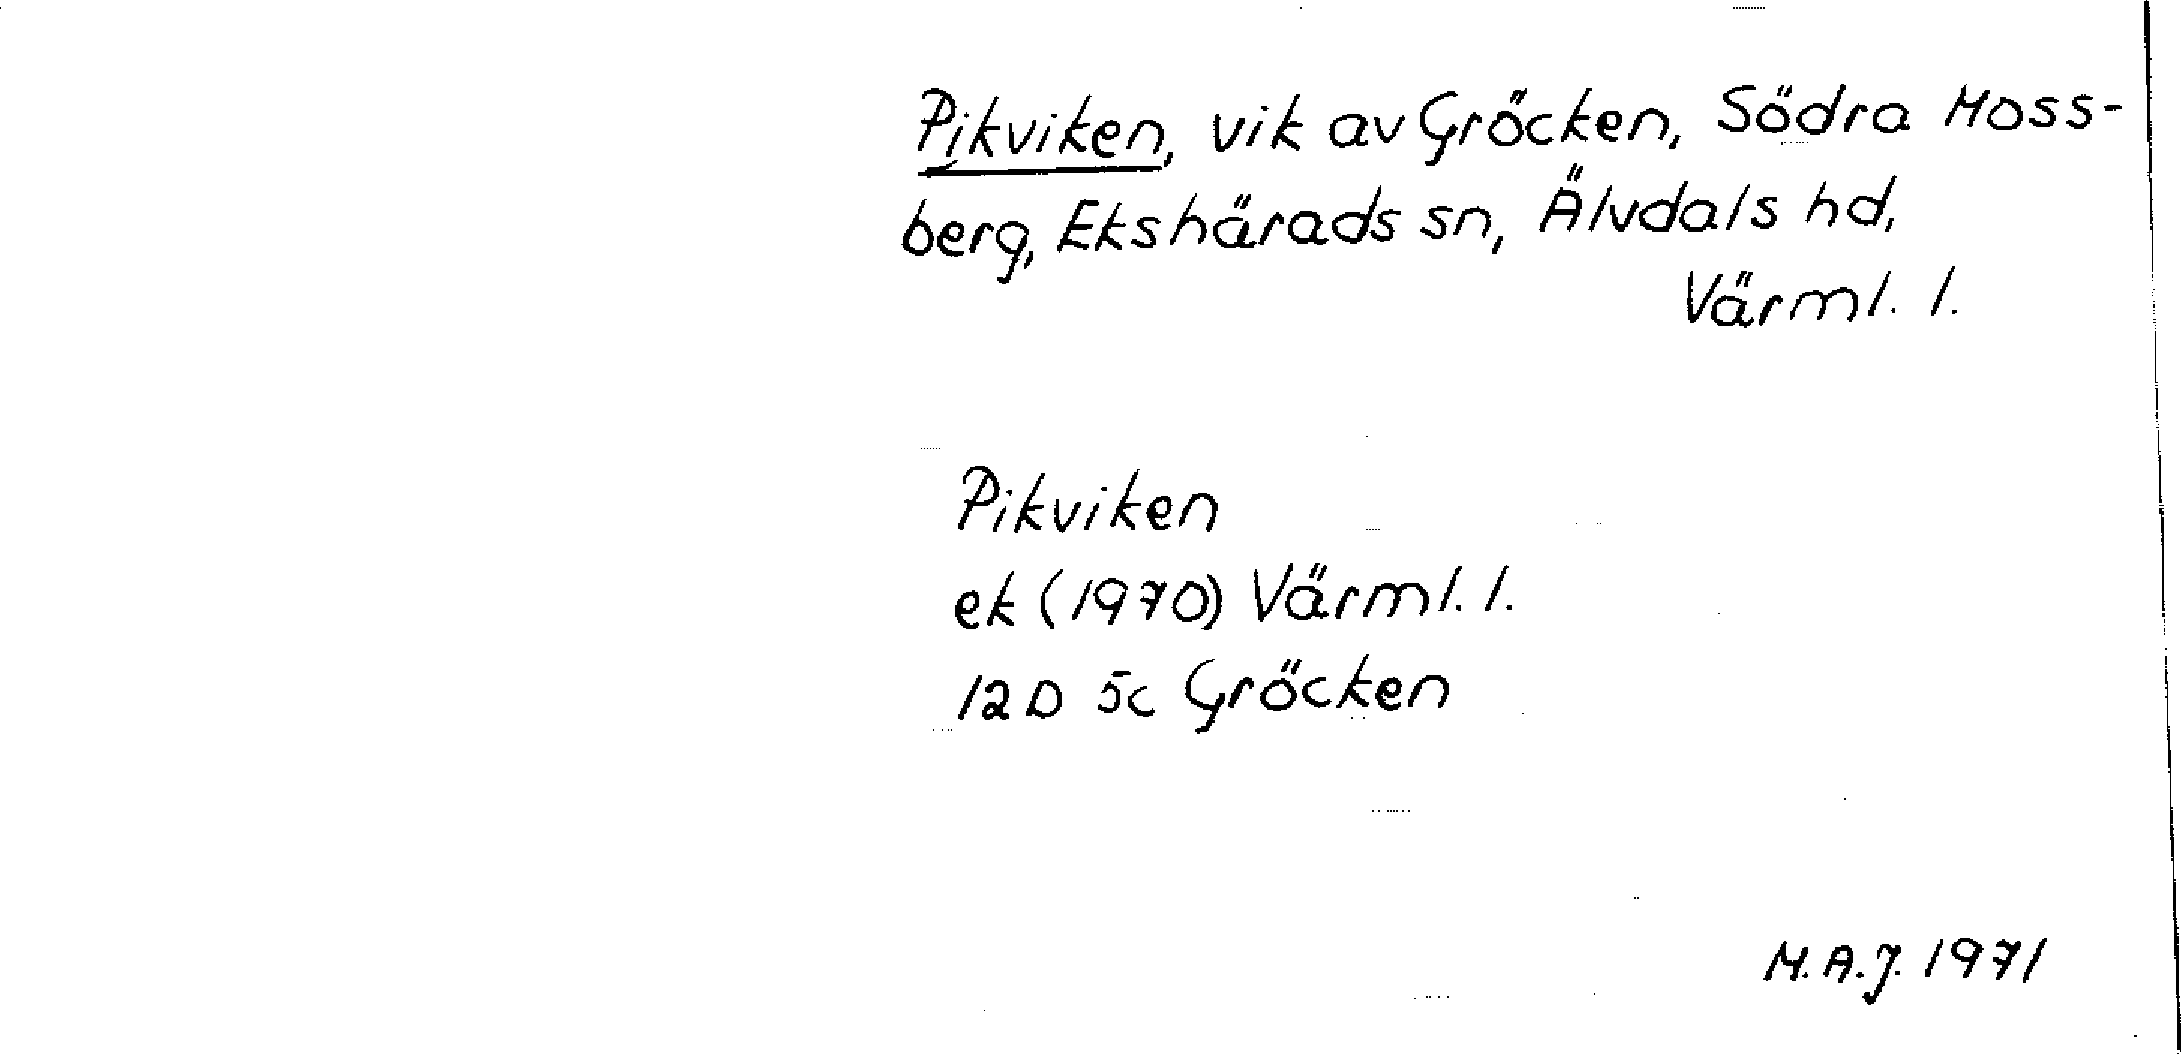 Pikviken, vik av Gröcken, Södra Moss-
berg, Ekshärads sn, Älvdals hd,
Värml. l.
Pikviken
ek (1970) Värml. l.
12D 5c Gröcken
M.A.J. 1971